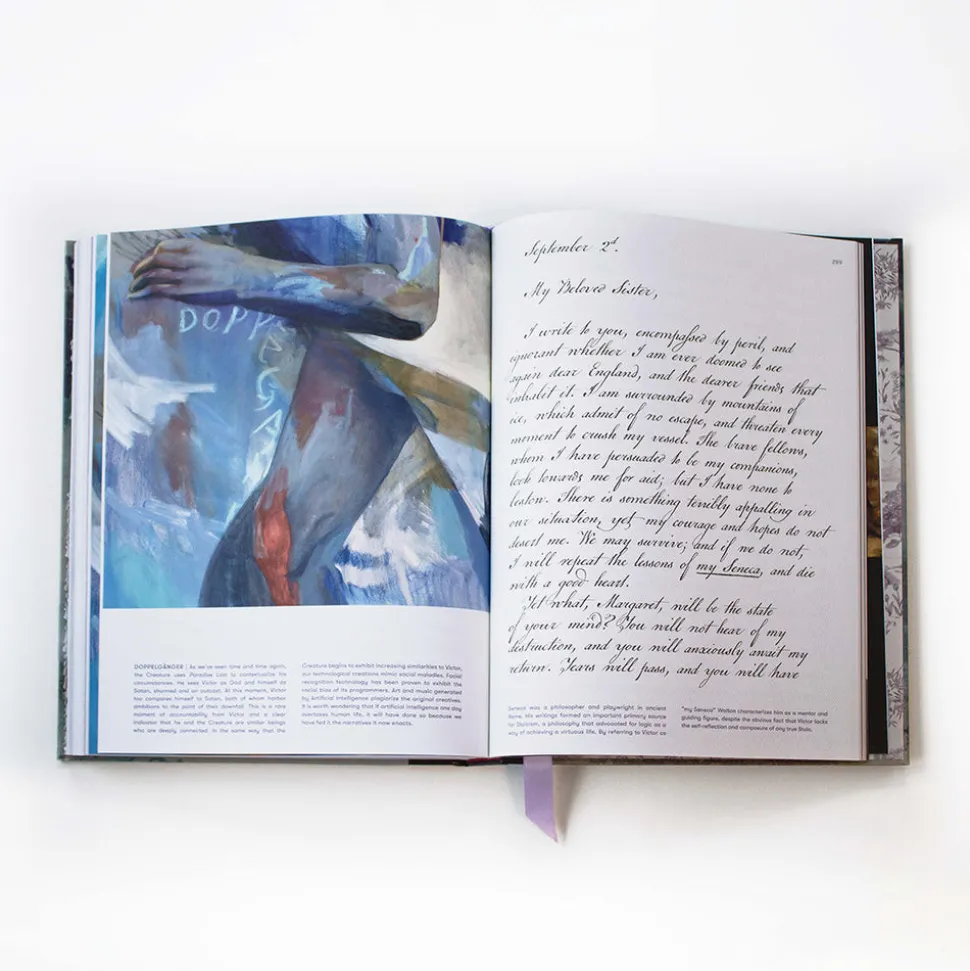 DOPPELGÄNGER
DOPPELGÄNGER | As we've seen time and time again,
the Creature uses Paradise Lost to contextualize his
circumstances. He sees Victor as God and himself as
Satan, shunned and an outcast. At this moment, Victor
too compares himself to Satan, both of whom harbor
ambitions to the point of their downfall. This is a rare
moment of accountability from Victor and a clear
indicator that he and the Creature are similar beings
who are deeply connected. In the same way that the
Creature begins to exhibit increasing similarities to Victor,
our technological creations mimic social maladies. Facial
recognition technology has been proven to exhibit the
racial bias of its programmers. Art and music generated
by Artificial Intelligence plagiarize the original creatives.
It is worth wondering that if artificial intelligence one day
overtakes human life, it will have done so because we
have fed it the narratives it now enacts.
September 2d.
My Beloved Sister,
I write to you, encompassed by peril, and
ignorant whether I am ever doomed to see
again dear England, and the dearer friends that
inhabit it. I am surrounded by mountains of
ice, which admit of no escape, and threaten every
moment to crush my vessel. The brave fellows,
whom I have persuaded to be my companions,
look towards me for aid; but I have none to
bestow. There is something terribly appalling in
our situation, yet my courage and hopes do not
desert me. We may survive; and if we do not,
I will repeat the lessons of my Seneca, and die
with a good heart.
Yet what, Margaret, will be the state
of your mind? You will not hear of my
destruction, and you will anxiously await my
return. Years will pass, and you will have
Seneca was a philosopher and playwright in ancient
Rome. His writings formed an important primary source
for Stoicism, a philosophy that advocated for logic as a
way of achieving a virtuous life. By referring to Victor as
"my Seneca" Walton characterizes him as a mentor and
guiding figure, despite the obvious fact that Victor lacks
the self-reflection and composure of any true Stoic.